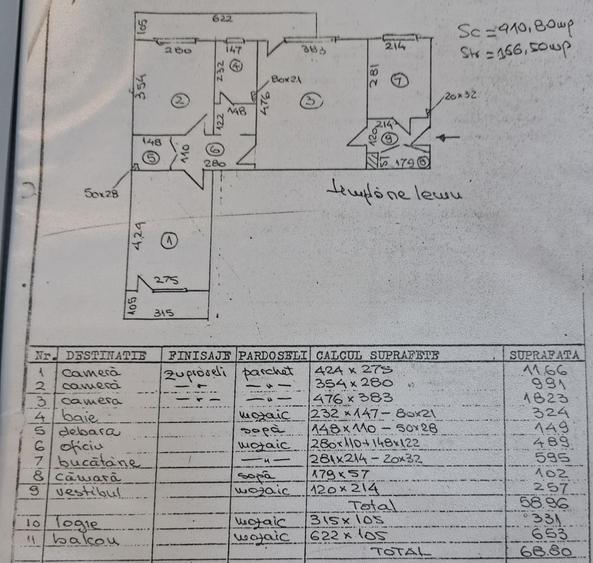 622
105
280
147
383
214
Sc = 910,80 mp
Str = 166,50 mp
354
232
4
281
80x21
20x32
2
148
476
3
7
122
214
120
9
148
110
5
6
280
57
179
8
50x28
tâmplărie lemn
424
1
275
105
315
Nr. DESTINATIE FINISAJE PARDOSELI CALCUL SUPRAFETE SUPRAFATA
1 cameră zugrăveli parchet 424 x 275 11.66
2 cameră — " — — " — 354 x 280 991
3 camera — " — — " — 476 x 383 1823
4 baie mozaic 232 x 147 - 80x21 324
5 debara sapă 148 x 110 - 50x28 149
6 oficiu mozaic 280x110+148x122 489
7 bucătărie — " — 281x214-20x32 595
8 cămară sapă 179 x 57 102
9 vestibul mozaic 120 x 214 257
Total 58.96
10 logie mozaic 315 x 105 331
11 balcon mozaic 622 x 105 653
TOTAL 68.80